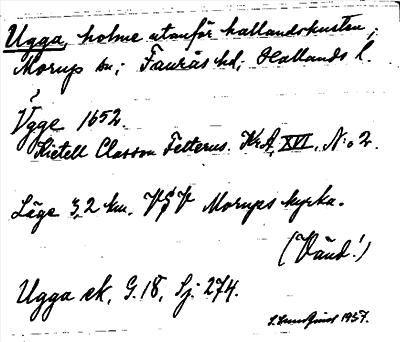 Ugga, holme utanför hallandskusten,
Morup sn; Faurås hd; Hallands l.
?
Ÿgge 1652.
Kietell Classon Felterus. KrA, XVI, N:o 2.
Läge 3,2 km. VSV Morups kyrka.
(Vänd!)
Ugga ek, G. 18, Sj. 274.
1957.